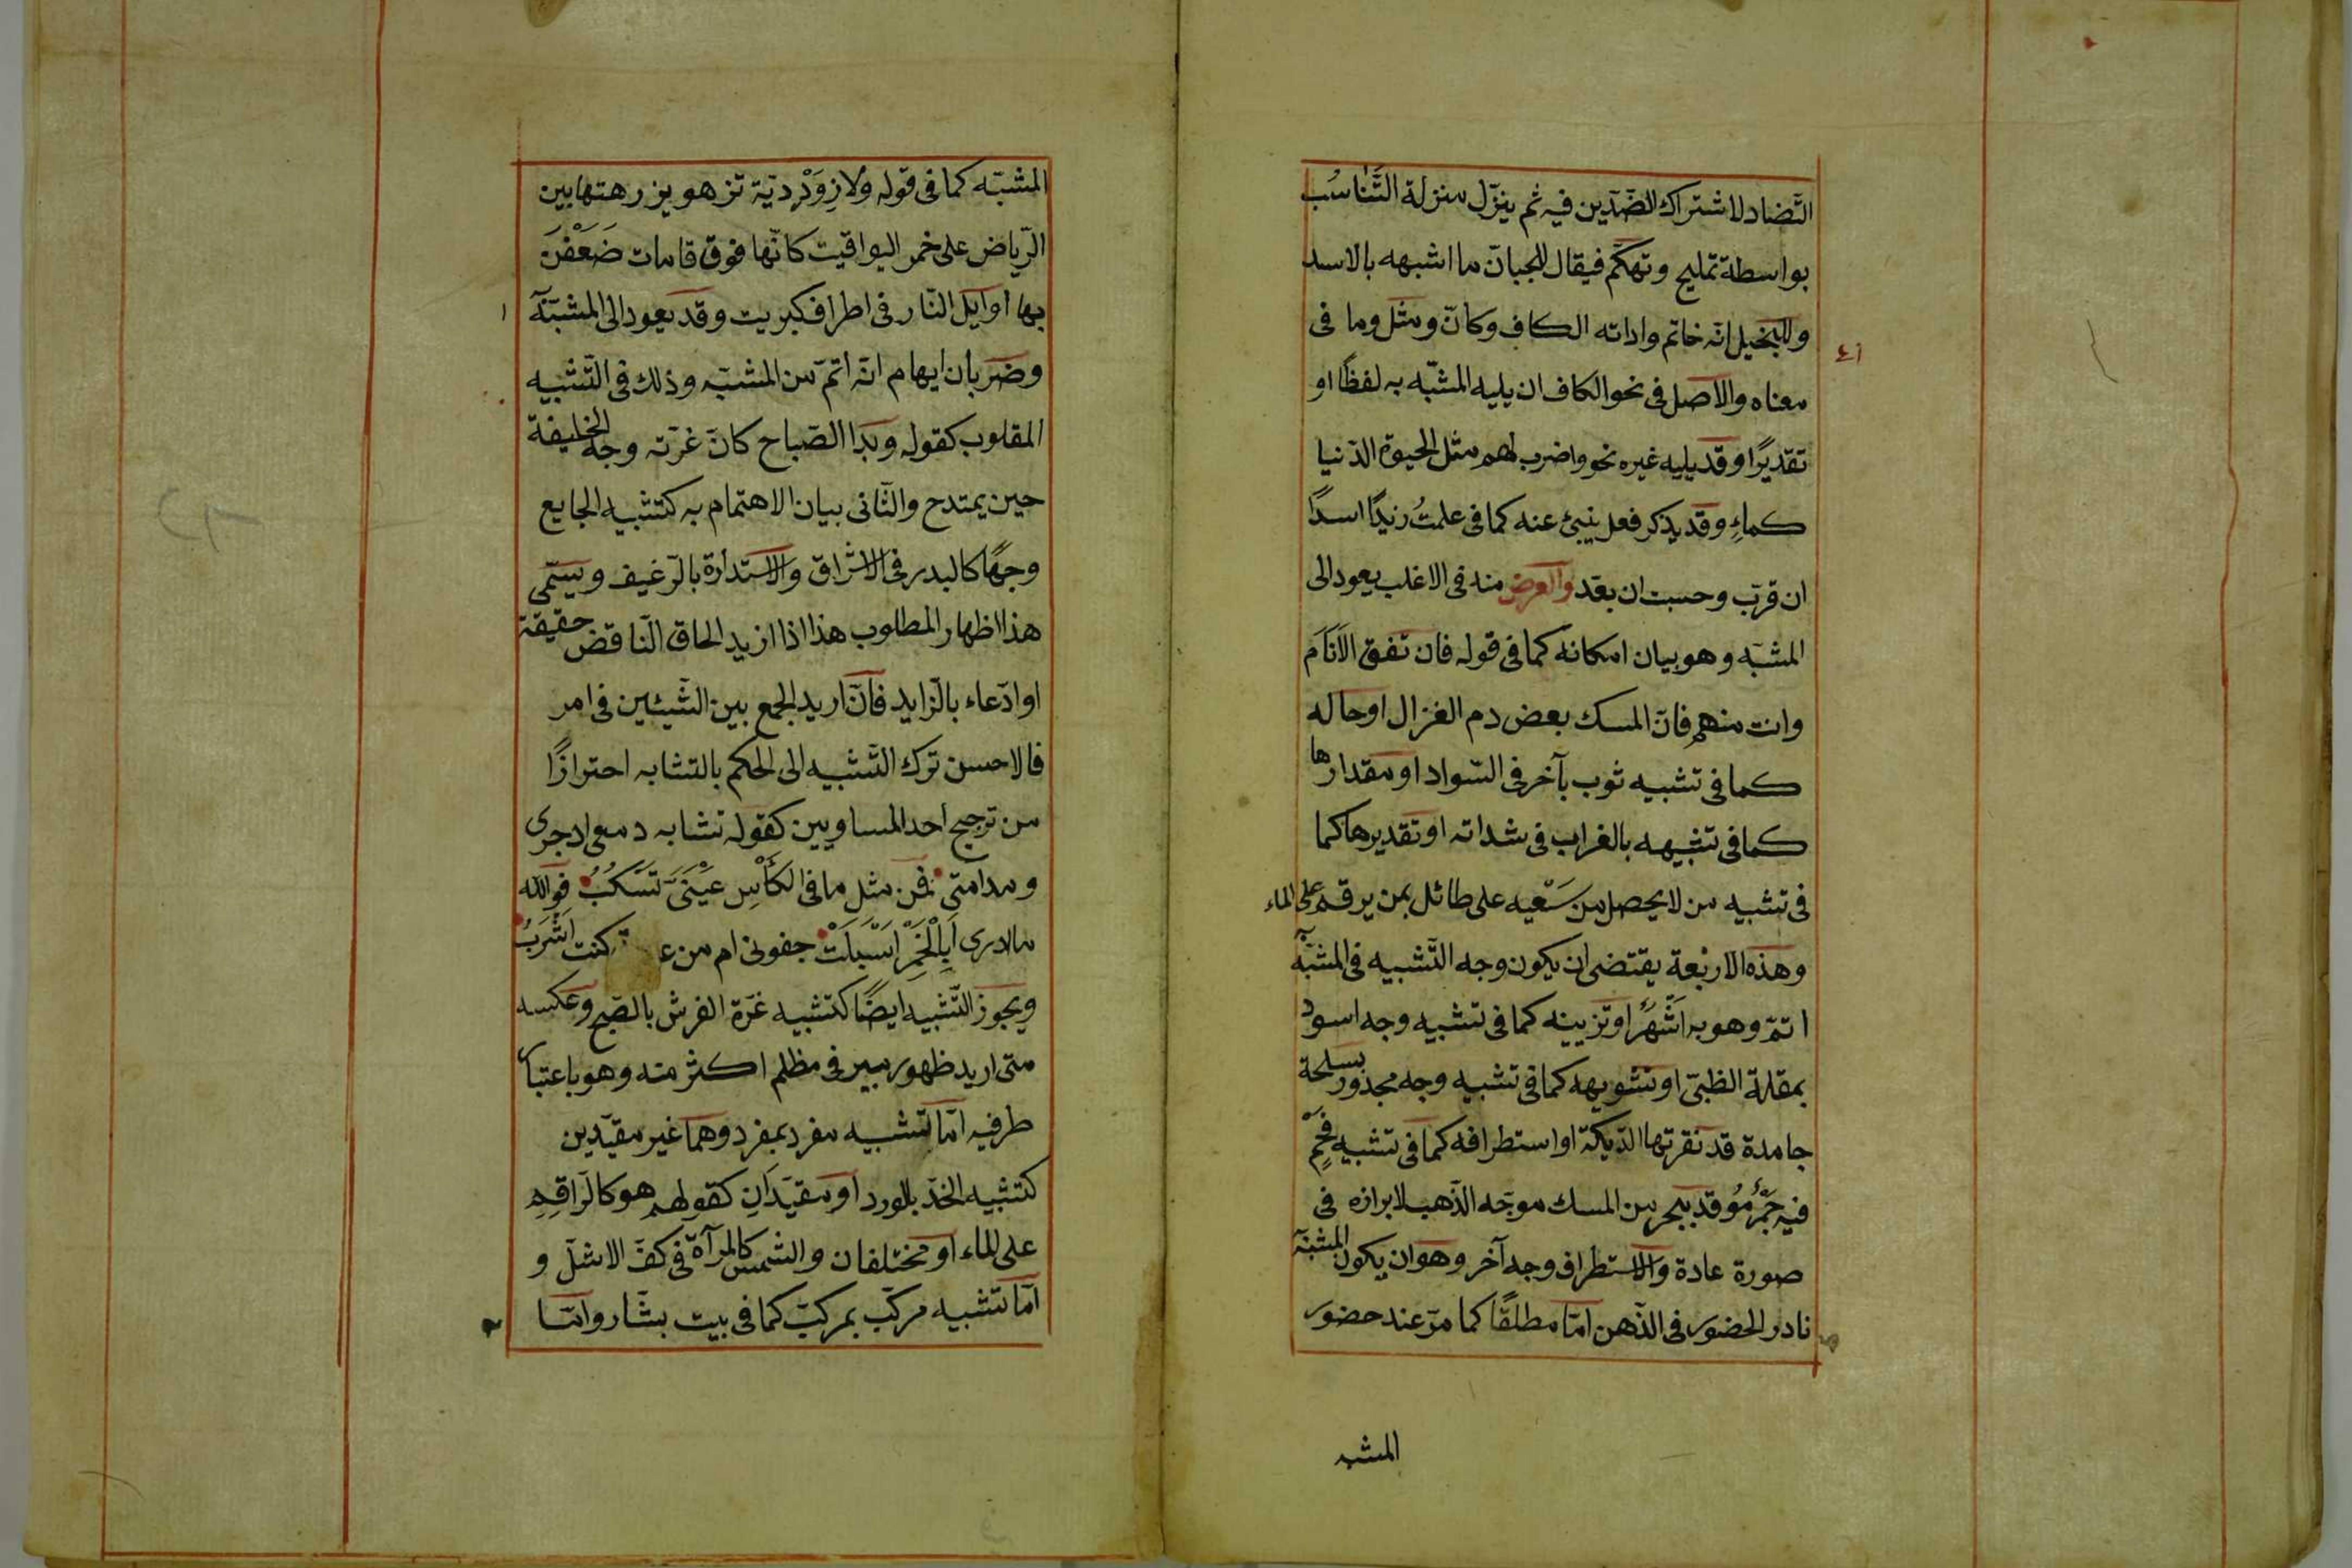 التّضاد لاشتراك الضّدّين فيه ثم ينزّل منزلة التّناسُب
بواسطة تمليح وتهكّم فيقال للجبان ما اشبهه بالاسد
وللبخيل انّه خاتم واداته الكاف وكانّ ومثل وما فى
معناه والاصل فى نحو الكاف ان يليه المشبّه به لفظًا او
تقديرًا وقد يليه غيره نحو واضرب لهم مثل الحيوة الدّنيا
كماءٍ وقد يذكر فعل ينبئ عنه كما فى علمتُ زيدًا اسدًا
ان قرّب وحسبت ان بعّد والغرض منه فى الاغلب يعود الى
المشبّه وهو بيان امكانه كما فى قوله فان تفق الاَنَامَ
وانت منهم فانّ المسك بعض دم الغزال او حاله
كما فى تشبيه ثوب بآخر فى السّواد او مقدارها
كما فى تشبيهه بالغراب فى شداته او تقديرها كما
فى تشبيه من لا يحصل من سَعْيه على طائل بمن يرقم على الماء
وهذه الاربعة يقتضى ان يكون وجه التّشبيه فى المشبّه به
اتمّ وهو به اَشْهَرُ او تزيينه كما فى تشبيه وجه اسود
بمقلة الظبىّ او تشويهه كما فى تشبيه وجه مجدور بسلحة
جامدة قد نقرتها الدّيكة او استطرافه كما فى تشبيه فَحْمٍ
فيه جَمْرٌ مُوقد ببحر من المسك موجّه الذّهب لابرازه فى
صورة عادة والاستطراف وجه آخر وهو ان يكون المشبّه
نادر الحضور فى الذّهن امّا مطلقًا كما مرّ عند حضور
المشبه
٤١
المشبّه كما فى قوله ولازِوَرْدِديّة تزهو بزرهتها بين
الرّياض على خمر اليواقيت كانّها فوق قامات ضَعَفْنَ
بها اوايل النّار فى اطراف كبريت وقد يعود الى المشبّه به
وضربان ايهام انّه اتمّ من المشبّه وذلك فى التّشبيه
المقلوب كقوله وبَدَا الصّباح كانّ غرّته وجه الخليفة
حين يمتدح والثّانى بيان الاهتمام به كتشبيه الجايع
وجهًا كالبدر فى الاشراق والاستدارة بالرّغيف ويسمّى
هذا اظهار المطلوب هذا اذا ازيد الحاق النّاقض حقيقة
او ادّعاء بالزّايد فانّ اريد الجمع بين الشّيئين فى امر
فالاحسن ترك التّشبيه الى الحكم بالتشابه احترازًا
من ترجيح احد المساويين كقوله تشابه دمعى اذ جرى
ومدامتى فمن مثل ما فى الكَأْسِ عَيْنَىَّ تَسْكُبُ فوالله
ما لادرى اَبِالْخَمْرِ اَسْبَلَتْ جفونى ام من كنت اَشْرَبُ
ويجوز التّشبيه ايضًا كتشبيه غرّة الفرش بالصّبح وعكسه
متى اريد ظهور مبير فى مظلم اكثر منه وهو باعتبار
طرفيه امّا تشبيه مفرد بمفرد وهما غير مقيّدين
كتشبيه الخدّ بالورد او مقيّدَانِ كقولهم هو كالرّاقِمِ
على الماء او مختلفان والشمس كالمرآة فى كفّ الاشلّ و
امّا تشبيه مركّب بمركّب كما فى بيت بشّار وامّا